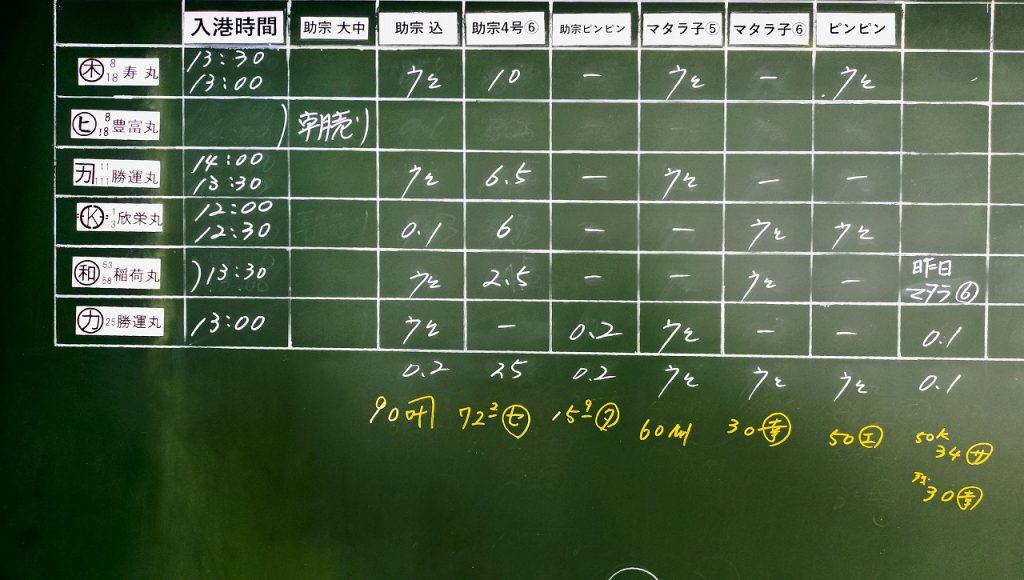 入港時間 助宗 大中 助宗 込 助宗4号⑥ 助宗ピンピン マタラ子⑤ マタラ子⑥ ピンピン
㊍ 8 18 寿丸 13:30 13:00 ウと 10 — ウと — ウと
ヒ 8 18 豊富丸 ) 朝売り
カ 11 111 勝運丸 14:00 13:30 ウと 6.5 — ウと — —
K 1 3 欣栄丸 12:00 12:30 0.1 6 — — ウと ウと
和 53 58 稲荷丸 ) 13:30 ウと 2.5 — — ウと — 昨日 マタラ⑥
カ 25 勝運丸 13:00 ウと — 0.2 ウと — — 0.1
0.2 25 0.2 ウと ウと ウと 0.1
90 叶 72 3 セ 15 9 60 30 幸 50 エ 50K
34 サ
30 幸